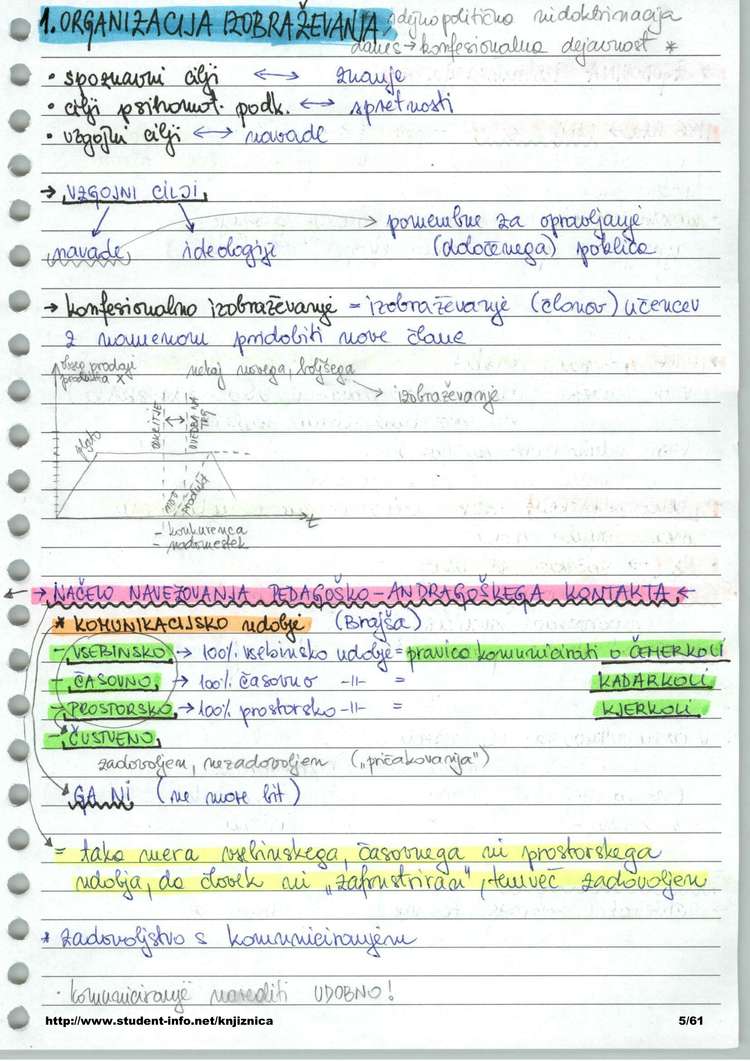 1. ORGANIZACIJA IZOBRAŽEVANJA, idejnopolitična indoktrinacija
danes → konfesionalna dejavnost *
• spoznavni cilji ↔ znanje
• cilji psihomot. podk. ↔ spretnosti
• vzgojni cilji ↔ navade
→ VZGOJNI CILJI
navade, ideologije → pomembne za opravljanje
(določenega) poklica
→ konfesionalno izobraževanje = izobraževanje (članov) učencev
z namenom pridobiti nove člane
prodaje
produkta x
nekaj novega, boljšega
→ izobraževanje
ODKRITJE ↔ UVEDBA NA TRG
plato
nov produkt
t
- konkurenca
- nadomestek
→ NAČELO NAVEZOVANJA PEDAGOŠKO-ANDRAGOŠKEGA KONTAKTA ←
* KOMUNIKACIJSKO udobje (Brajša)
- VSEBINSKO → 100% vsebinsko udobje = pravico komunicirati o ČEMERKOLI
- ČASOVNO → 100% časovno -||- = KADARKOLI
- PROSTORSKO → 100% prostorsko -||- = KJERKOLI
- ČUSTVENO
zadovoljen, nezadovoljen („pričakovanja")
GA NI (ne more bit)
= taka mera vsebinskega, časovnega in prostorskega
udobja, da človek ni „zafrustriran", temveč zadovoljen
* zadovoljstvo s komuniciranjem
• komuniciranje narediti UDOBNO!
http://www.student-info.net/knjiznica 5/61